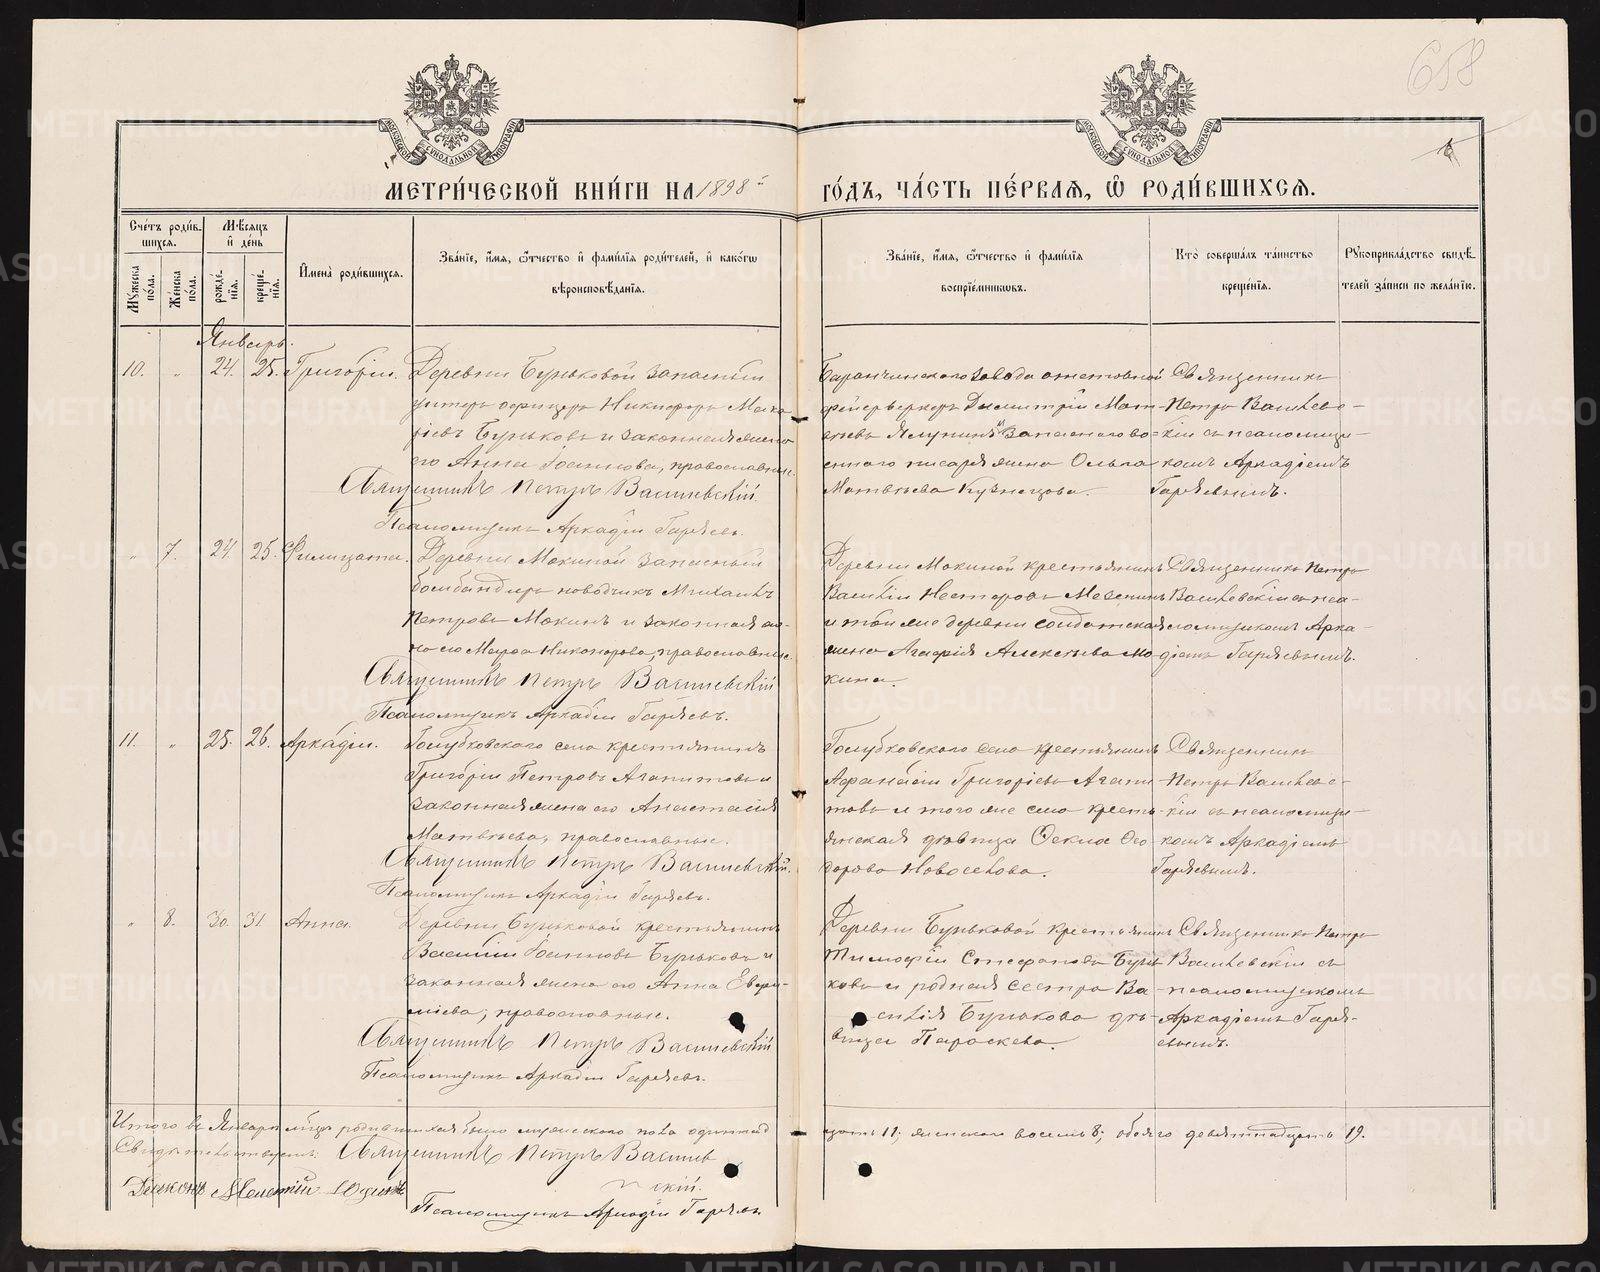 658
МЕТРИ́ЧЕСКОЙ КНИ́ГИ НА 1898й ГО́ДЪ, ЧА́СТЬ ПЕ́РВАѦ, Ѽ РОДИ́ВШИХСѦ.
Сче́тъ роди́в-
шихсѧ.
Мꙋ́жеска по́ла.
Же́нска по́ла.
Мѣ́сѧцъ
и҆ де́нь
рожде́-
нїѧ.
креще́-
нїѧ.
И҆мена̀ роди́вшихсѧ.
Зва́нїе, и҆́мѧ, ѻ҆́тчество и҆ фами́лїѧ роди́телей, и҆ како́гѡ
вѣроисповѣ́данїѧ.
Зва́нїе, и҆́мѧ, ѻ҆́тчество и҆ фами́лїѧ
воспрїе́мникѡвъ.
Кто̀ соверша́лъ та́инство
креще́нїѧ.
Рꙋкоприкла́дство свидѣ́-
телей за́писи по жела́нїю.
Январь.
10. „ 24. 25. Григорій. Деревни Буньковой запасный
унтеръ офицеръ Никифоръ Мака-
ріевъ Буньковъ и законная жена
его Анна Іоаннова, православные.
Священникъ Петръ Василевскій
Псаломщикъ Аркадій Гаряевъ.
Баранчинского завода отставной
фейерверкеръ Димитрій Мат-
вѣевъ Ялунинъ и запасного во-
еннаго писаря жена Ольга
Матвѣева Кузнецова.
Священникъ
Петръ Василевс-
кій съ псаломщи-
комъ Аркадіемъ
Гаряевымъ.
„ 7. 24 25. Филицата. Деревни Мокиной запасный
бомбандиръ наводчикъ Михаилъ
Петровъ Мокинъ и законная же-
на его Марѳа Никонорова, православные.
Священникъ Петръ Василевскій
Псаломщикъ Аркадій Гаряевъ.
Деревни Мокиной крестьянинъ
Василій Несторовъ Мезенинъ
и той же деревни солдатская
жена Агафія Алексѣева Мо-
кина.
Священникъ Петръ
Василевскій съ пса-
ломщикомъ Арка-
діемъ Гаряевымъ.
11. „ 25. 26. Аркадій. Голубковского села крестьянинъ
Григорій Петровъ Агапитовъ и
законная жена его Анастасія
Матвѣева, православные.
Священникъ Петръ Василевскій.
Псаломщикъ Аркадій Гаряевъ.
Голубковского села крестьянинъ
Афанасій Григорьевъ Агапи-
товъ и того же села кресть-
янская дѣвица Ѳекла Ѳео-
дорова Новоселова.
Священникъ
Петръ Василевс-
кій съ псаломщи-
комъ Аркадіемъ
Гаряевымъ.
„ 8. 30. 31. Анна. Деревни Буньковой крестьянинъ
Василій Іоанновъ Буньковъ и
законная жена его Анна Евфи-
міева, православные.
Священникъ Петръ Василевскій
Псаломщикъ Аркадій Гаряевъ.
Деревни Буньковой крестьянинъ
Тимофій Стефановъ Бунь-
ковъ и родная сестра Ва-
силія Бунькова дѣ-
вица Параскева.
Священникъ Петръ
Василевскій съ
псаломщикомъ
Аркадіемъ Гаря-
евымъ.
Итого въ Январѣ мѣсяцѣ родившихся было мужеского пола одиннад цать 11; женского восемь 8; обоего девятнадцать 19.
Свидѣтельствуемъ: Священникъ Петръ Василев
скій.
Діаконъ Мелетій Юдинъ
Псаломщикъ Аркадій Гаряевъ.